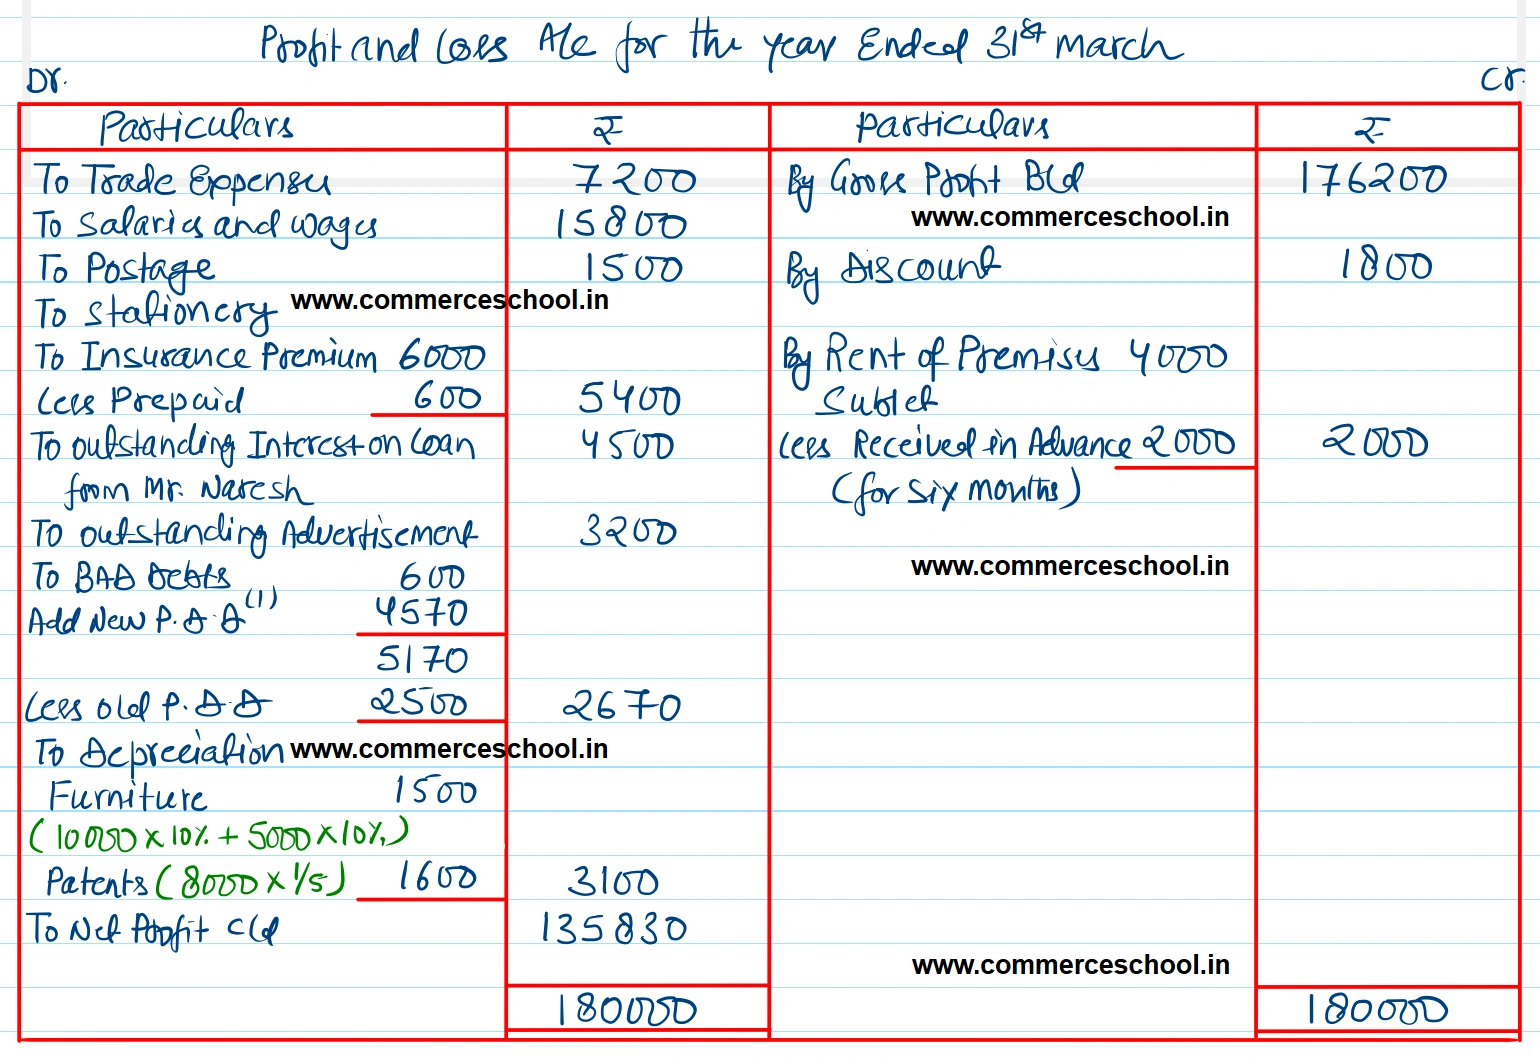 Profit and Loss A/c for the year Ended 31st March
Dr. Cr.
Particulars ₹ Particulars ₹
To Trade Expenses 7200 By Gross Profit B/d 176200
To Salaries and wages 15800 www.commerceschool.in
To Postage 1500 By Discount 1800
To Stationery www.commerceschool.in
To Insurance Premium 6000 By Rent of Premises 4000
Less Prepaid 600 5400 Sublet
To Outstanding Interest on Loan 4500 Less Received in Advance 2000 2000
from Mr. Naresh (for six months)
To Outstanding Advertisement 3200
To BAD Debts 600 www.commerceschool.in
Add New P.D.D (1) 4570
5170
Less Old P.D.D 2500 2670
To Depreciation www.commerceschool.in
Furniture 1500
(10000 × 10% + 5000 × 10%)
Patents (8000 × 1/5) 1600 3100
To Net Profit C/d 135830
www.commerceschool.in
180000 180000